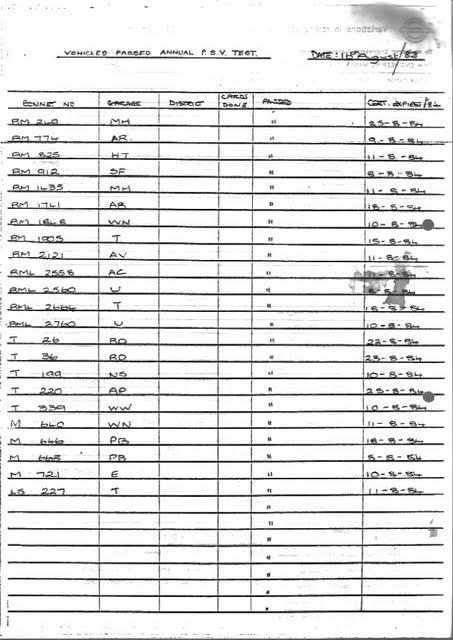 VEHICLES PASSED ANNUAL P.S.V. TEST. DATE: August/83
BONNET NO GARAGE DISTRICT CARDS DONE PASSED CERT. EXPIRES/84
RM 249 MH " 25-8-84
RM 774 AR. " 9-8-84
RM 825 HT " 11-8-84
RM 912 SF " 8-8-84
RM 1435 MH " 11-8-84
RM 1741 AR " 18-8-84
RM 1848 WN " 10-8-84
RM 1905 T " 15-8-84
RM 2121 AV " 11-8-84
RML 2558 AC " -8-84
RML 2560 U " -8-84
RML 2664 T " 18-8-84
RML 2760 U " 10-8-84
T 26 RD " 22-8-84
T 36 RD " 23-8-84
T 199 NS " 10-8-84
T 220 AP " 25-8-84
T 339 WW " 10-8-84
M 640 WN " 11-8-84
M 646 PB " 18-8-84
M PB " 8-8-84
M 721 E " 10-8-84
LS 227 T " 11-8-84
"
"
"
"
"
"